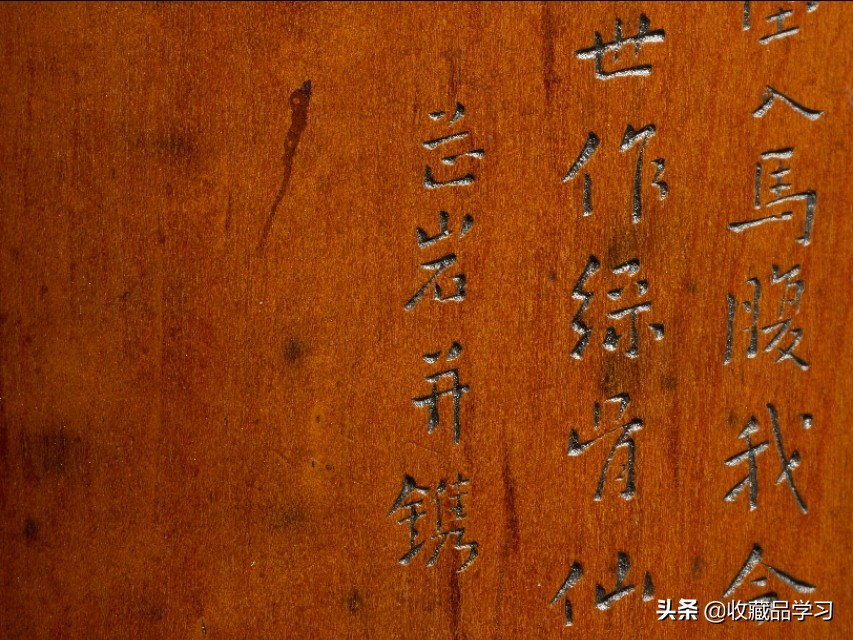 入馬腹我今
世作綠骨仙
芷岩并鐫
头条 @收藏品学习